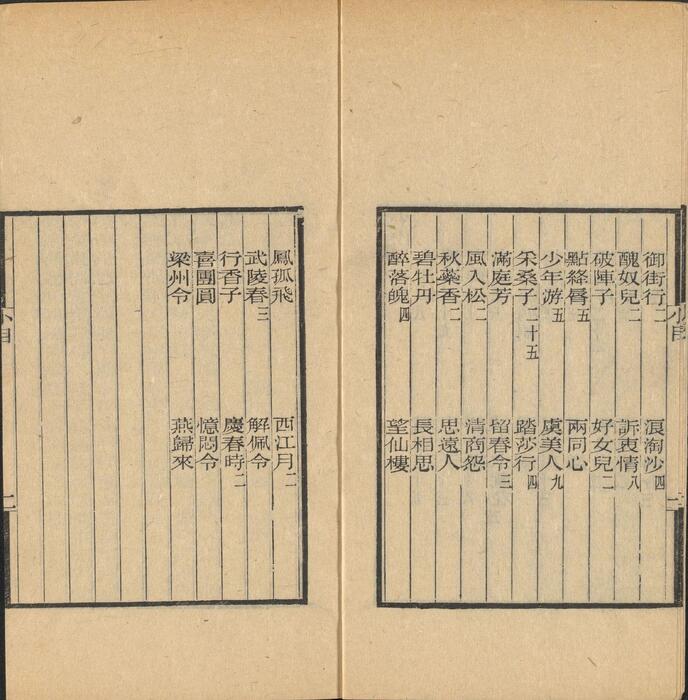 御街行二 浪淘沙四
醜奴兒二 訴衷情八
破陣子 好女兒二
點絳脣五 兩同心
少年游五 虞美人九
采桑子二十五 踏莎行四
滿庭芳 留春令三
風入松二 清商怨
秋蘂香二 思遠人
碧牡丹 長相思
醉落魄四 望仙樓
小目
二
鳳孤飛 西江月二
武陵春三 解佩令
行香子 慶春時二
喜團圓 憶悶令
梁州令 燕歸來
小目
二